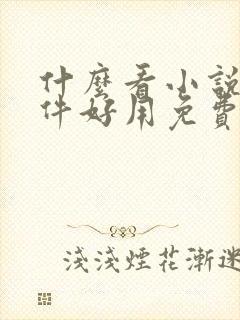 什麼看小說
件好用免費
淺淺煙花漸迷